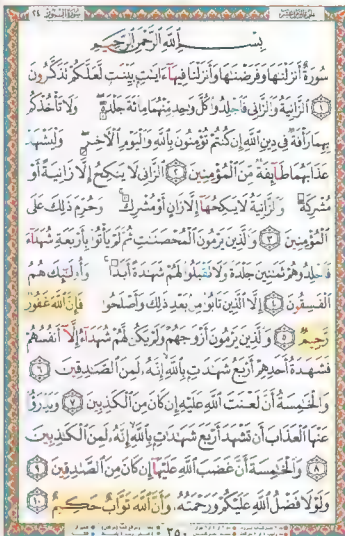 سورة النور ٢٤
بِسْمِ ٱللَّهِ ٱلرَّحْمَٰنِ ٱلرَّحِيمِ
سُورَةٌ أَنزَلْنَٰهَا وَفَرَضْنَٰهَا وَأَنزَلْنَا فِيهَآ ءَايَٰتٍۭ بَيِّنَٰتٍ لَّعَلَّكُمْ تَذَكَّرُونَ
١ ٱلزَّانِيَةُ وَٱلزَّانِى فَٱجْلِدُوا۟ كُلَّ وَٰحِدٍ مِّنْهُمَا مِا۟ئَةَ جَلْدَةٍ وَلَا تَأْخُذْكُم
بِهِمَا رَأْفَةٌ فِى دِينِ ٱللَّهِ إِن كُنتُمْ تُؤْمِنُونَ بِٱللَّهِ وَٱلْيَوْمِ ٱلْءَاخِرِ وَلْيَشْهَدْ
عَذَابَهُمَا طَآئِفَةٌ مِّنَ ٱلْمُؤْمِنِينَ ٢ ٱلزَّانِى لَا يَنكِحُ إِلَّا زَانِيَةً أَوْ
مُشْرِكَةً وَٱلزَّانِيَةُ لَا يَنكِحُهَآ إِلَّا زَانٍ أَوْ مُشْرِكٌ وَحُرِّمَ ذَٰلِكَ عَلَى
ٱلْمُؤْمِنِينَ ٣ وَٱلَّذِينَ يَرْمُونَ ٱلْمُحْصَنَٰتِ ثُمَّ لَمْ يَأْتُوا۟ بِأَرْبَعَةِ شُهَدَآءَ
فَٱجْلِدُوهُمْ ثَمَٰنِينَ جَلْدَةً وَلَا تَقْبَلُوا۟ لَهُمْ شَهَٰدَةً أَبَدًا وَأُو۟لَٰٓئِكَ هُمُ
ٱلْفَٰسِقُونَ ٤ إِلَّا ٱلَّذِينَ تَابُوا۟ مِنۢ بَعْدِ ذَٰلِكَ وَأَصْلَحُوا۟ فَإِنَّ ٱللَّهَ غَفُورٌ
رَّحِيمٌ ٥ وَٱلَّذِينَ يَرْمُونَ أَزْوَٰجَهُمْ وَلَمْ يَكُن لَّهُمْ شُهَدَآءُ إِلَّآ أَنفُسُهُمْ
فَشَهَٰدَةُ أَحَدِهِمْ أَرْبَعُ شَهَٰدَٰتٍۭ بِٱللَّهِ إِنَّهُۥ لَمِنَ ٱلصَّٰدِقِينَ ٦
وَٱلْخَٰمِسَةُ أَنَّ لَعْنَتَ ٱللَّهِ عَلَيْهِ إِن كَانَ مِنَ ٱلْكَٰذِبِينَ ٧ وَيَدْرَؤُا۟
عَنْهَا ٱلْعَذَابَ أَن تَشْهَدَ أَرْبَعَ شَهَٰدَٰتٍۭ بِٱللَّهِ إِنَّهُۥ لَمِنَ ٱلْكَٰذِبِينَ
٨ وَٱلْخَٰمِسَةَ أَنَّ غَضَبَ ٱللَّهِ عَلَيْهَآ إِن كَانَ مِنَ ٱلصَّٰدِقِينَ ٩
وَلَوْلَا فَضْلُ ٱللَّهِ عَلَيْكُمْ وَرَحْمَتُهُۥ وَأَنَّ ٱللَّهَ تَوَّابٌ حَكِيمٌ ١٠
٣٥٠